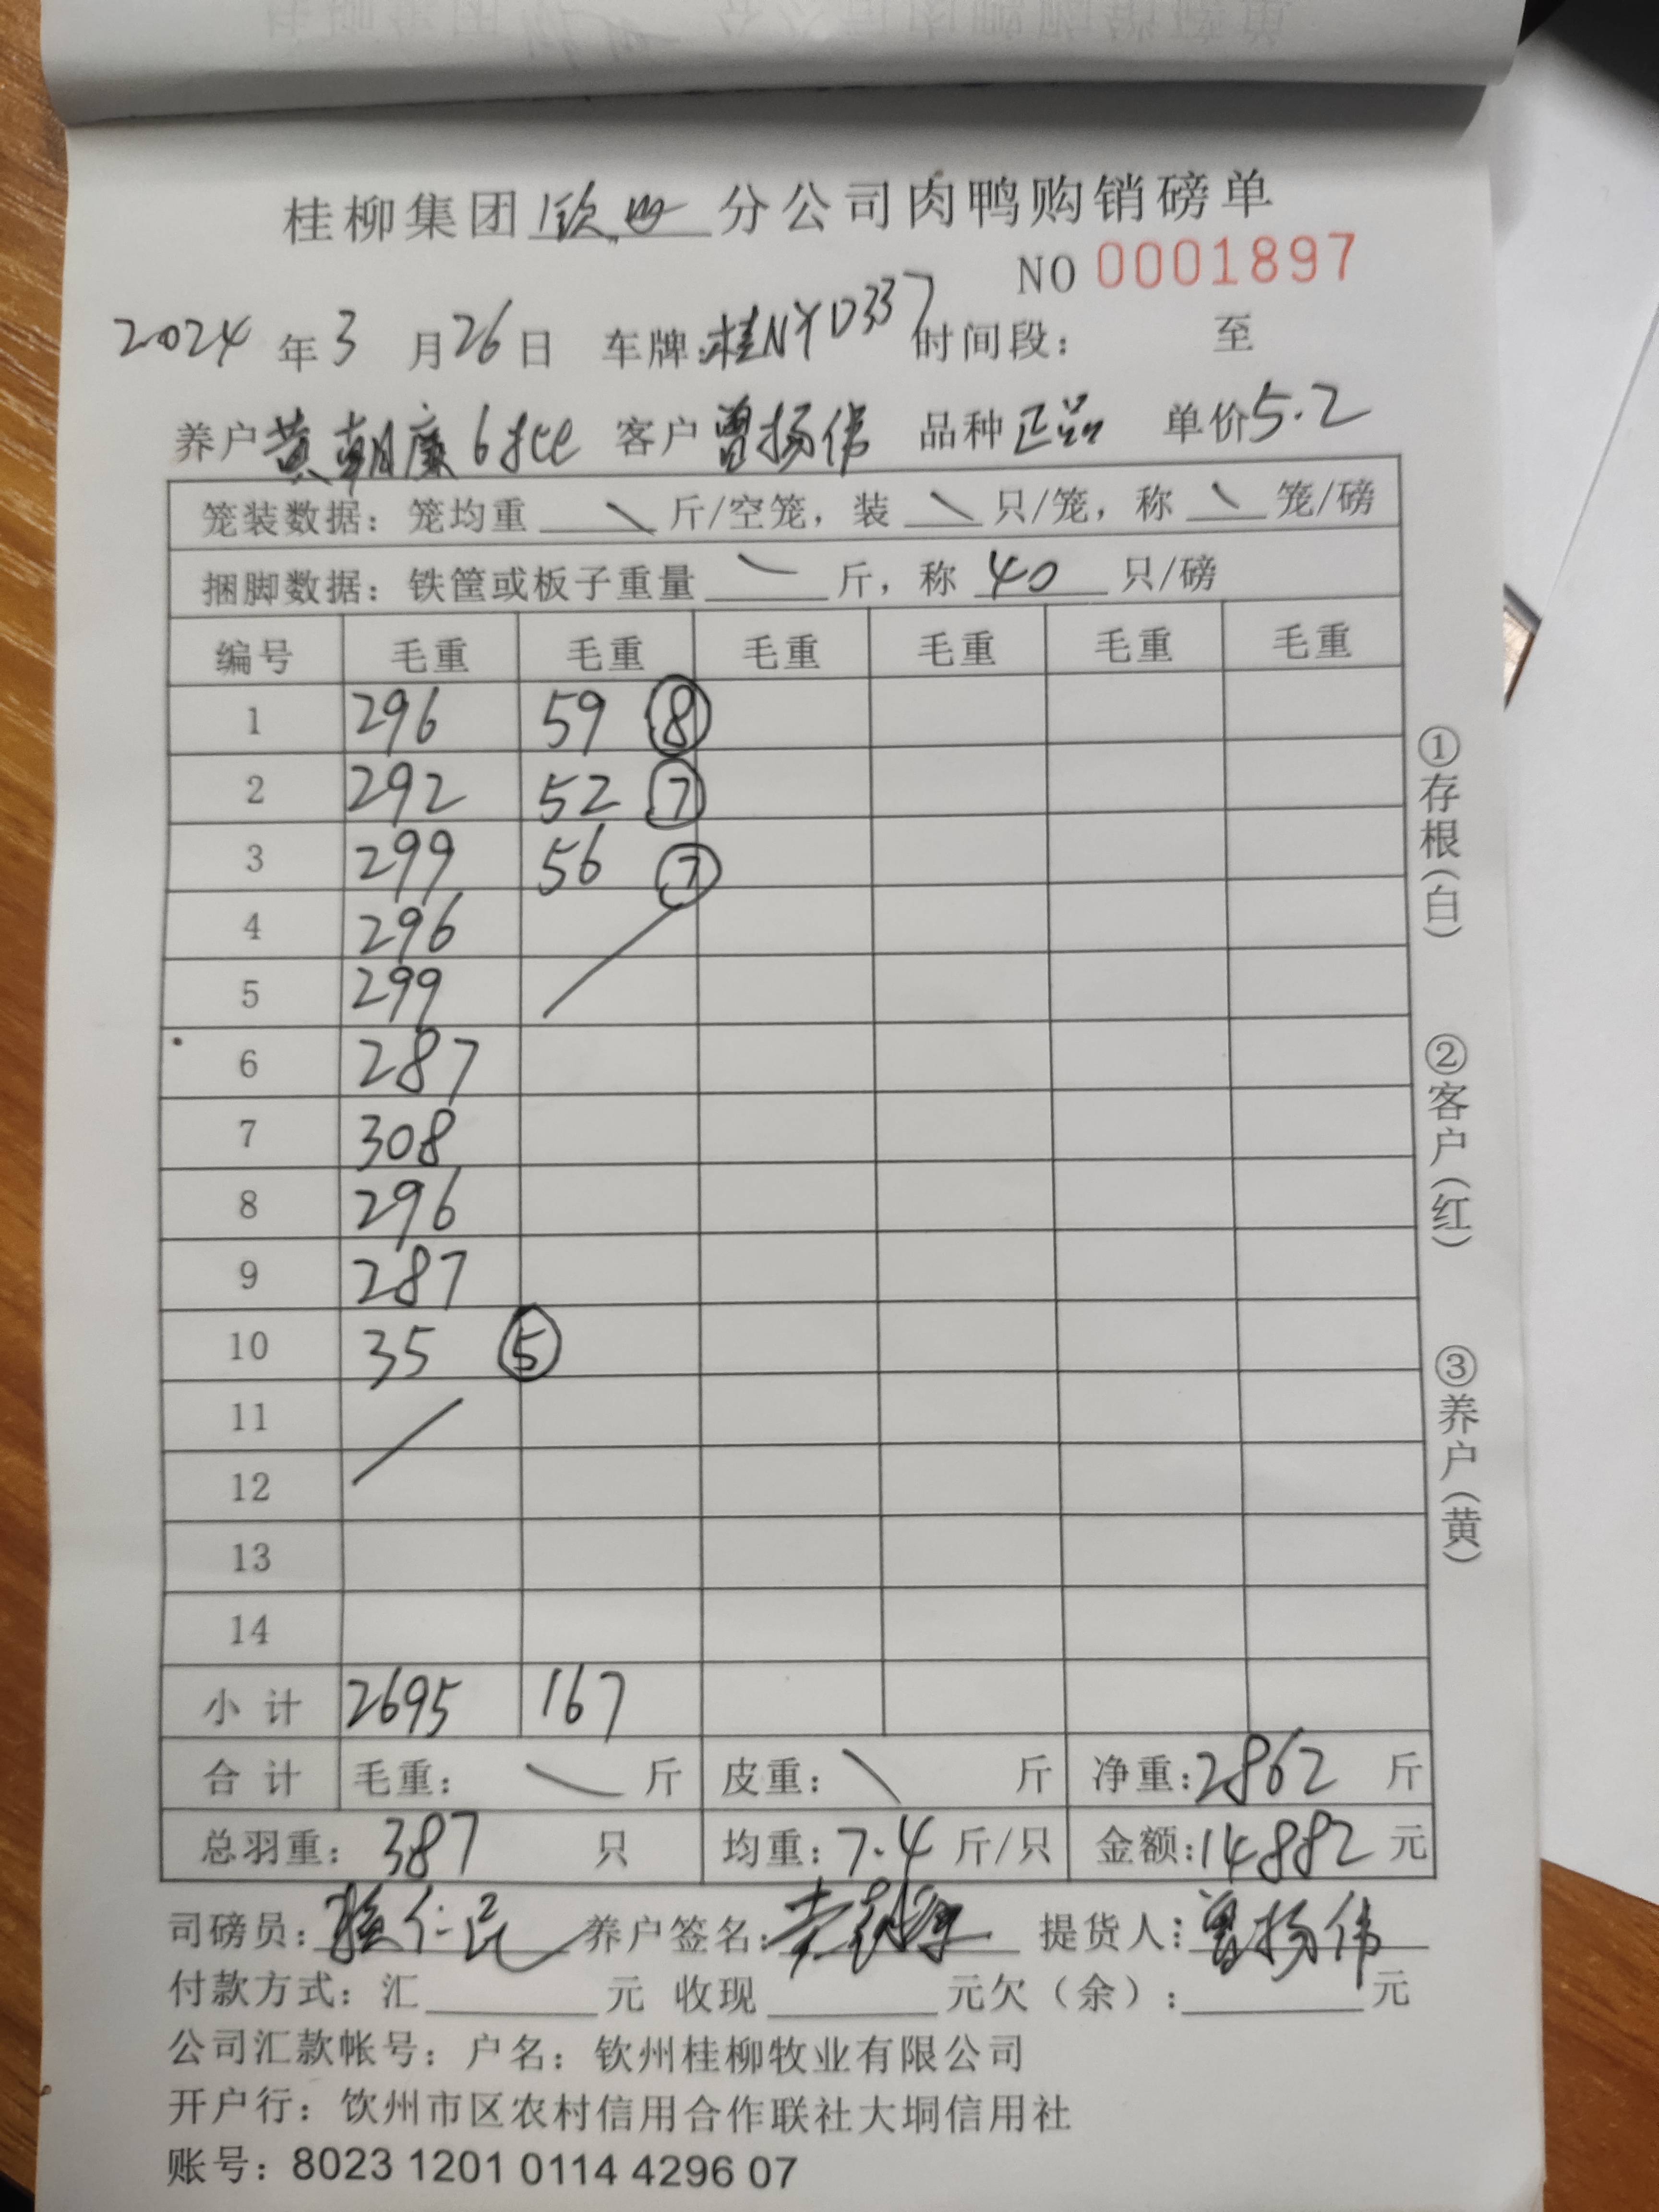 桂柳集团钦州分公司肉鸭购销磅单
NO 0001897
2024年3月26日 车牌:桂NYD337 时间段: 至
养户黄朝廉6批 客户曾扬伟 品种正品 单价5.2
笼装数据: 笼均重 \ 斤/空笼, 装 \ 只/笼, 称 \ 笼/磅
捆脚数据: 铁筐或板子重量 \ 斤, 称 40 只/磅
编号 毛重 毛重 毛重 毛重 毛重 毛重
1 296 59 ⑧
2 292 52 ⑦
3 299 56 ⑦
4 296
5 299
6 287
7 308
8 296
9 287
10 35 ⑤
11
12
13
14
小计 2695 167
合计 毛重: \ 斤 皮重: \ 斤 净重:2862 斤
总羽重: 387 只 均重:7.4斤/只 金额:14882元
司磅员: 仁民 养户签名: 提货人:曾扬伟
付款方式: 汇 元 收现 元欠(余): 元
公司汇款帐号: 户名: 钦州桂柳牧业有限公司
开户行: 饮州市区农村信用合作联社大垌信用社
账号: 8023 1201 0114 4296 07
①存根(白)
②客户(红)
③养户(黄)